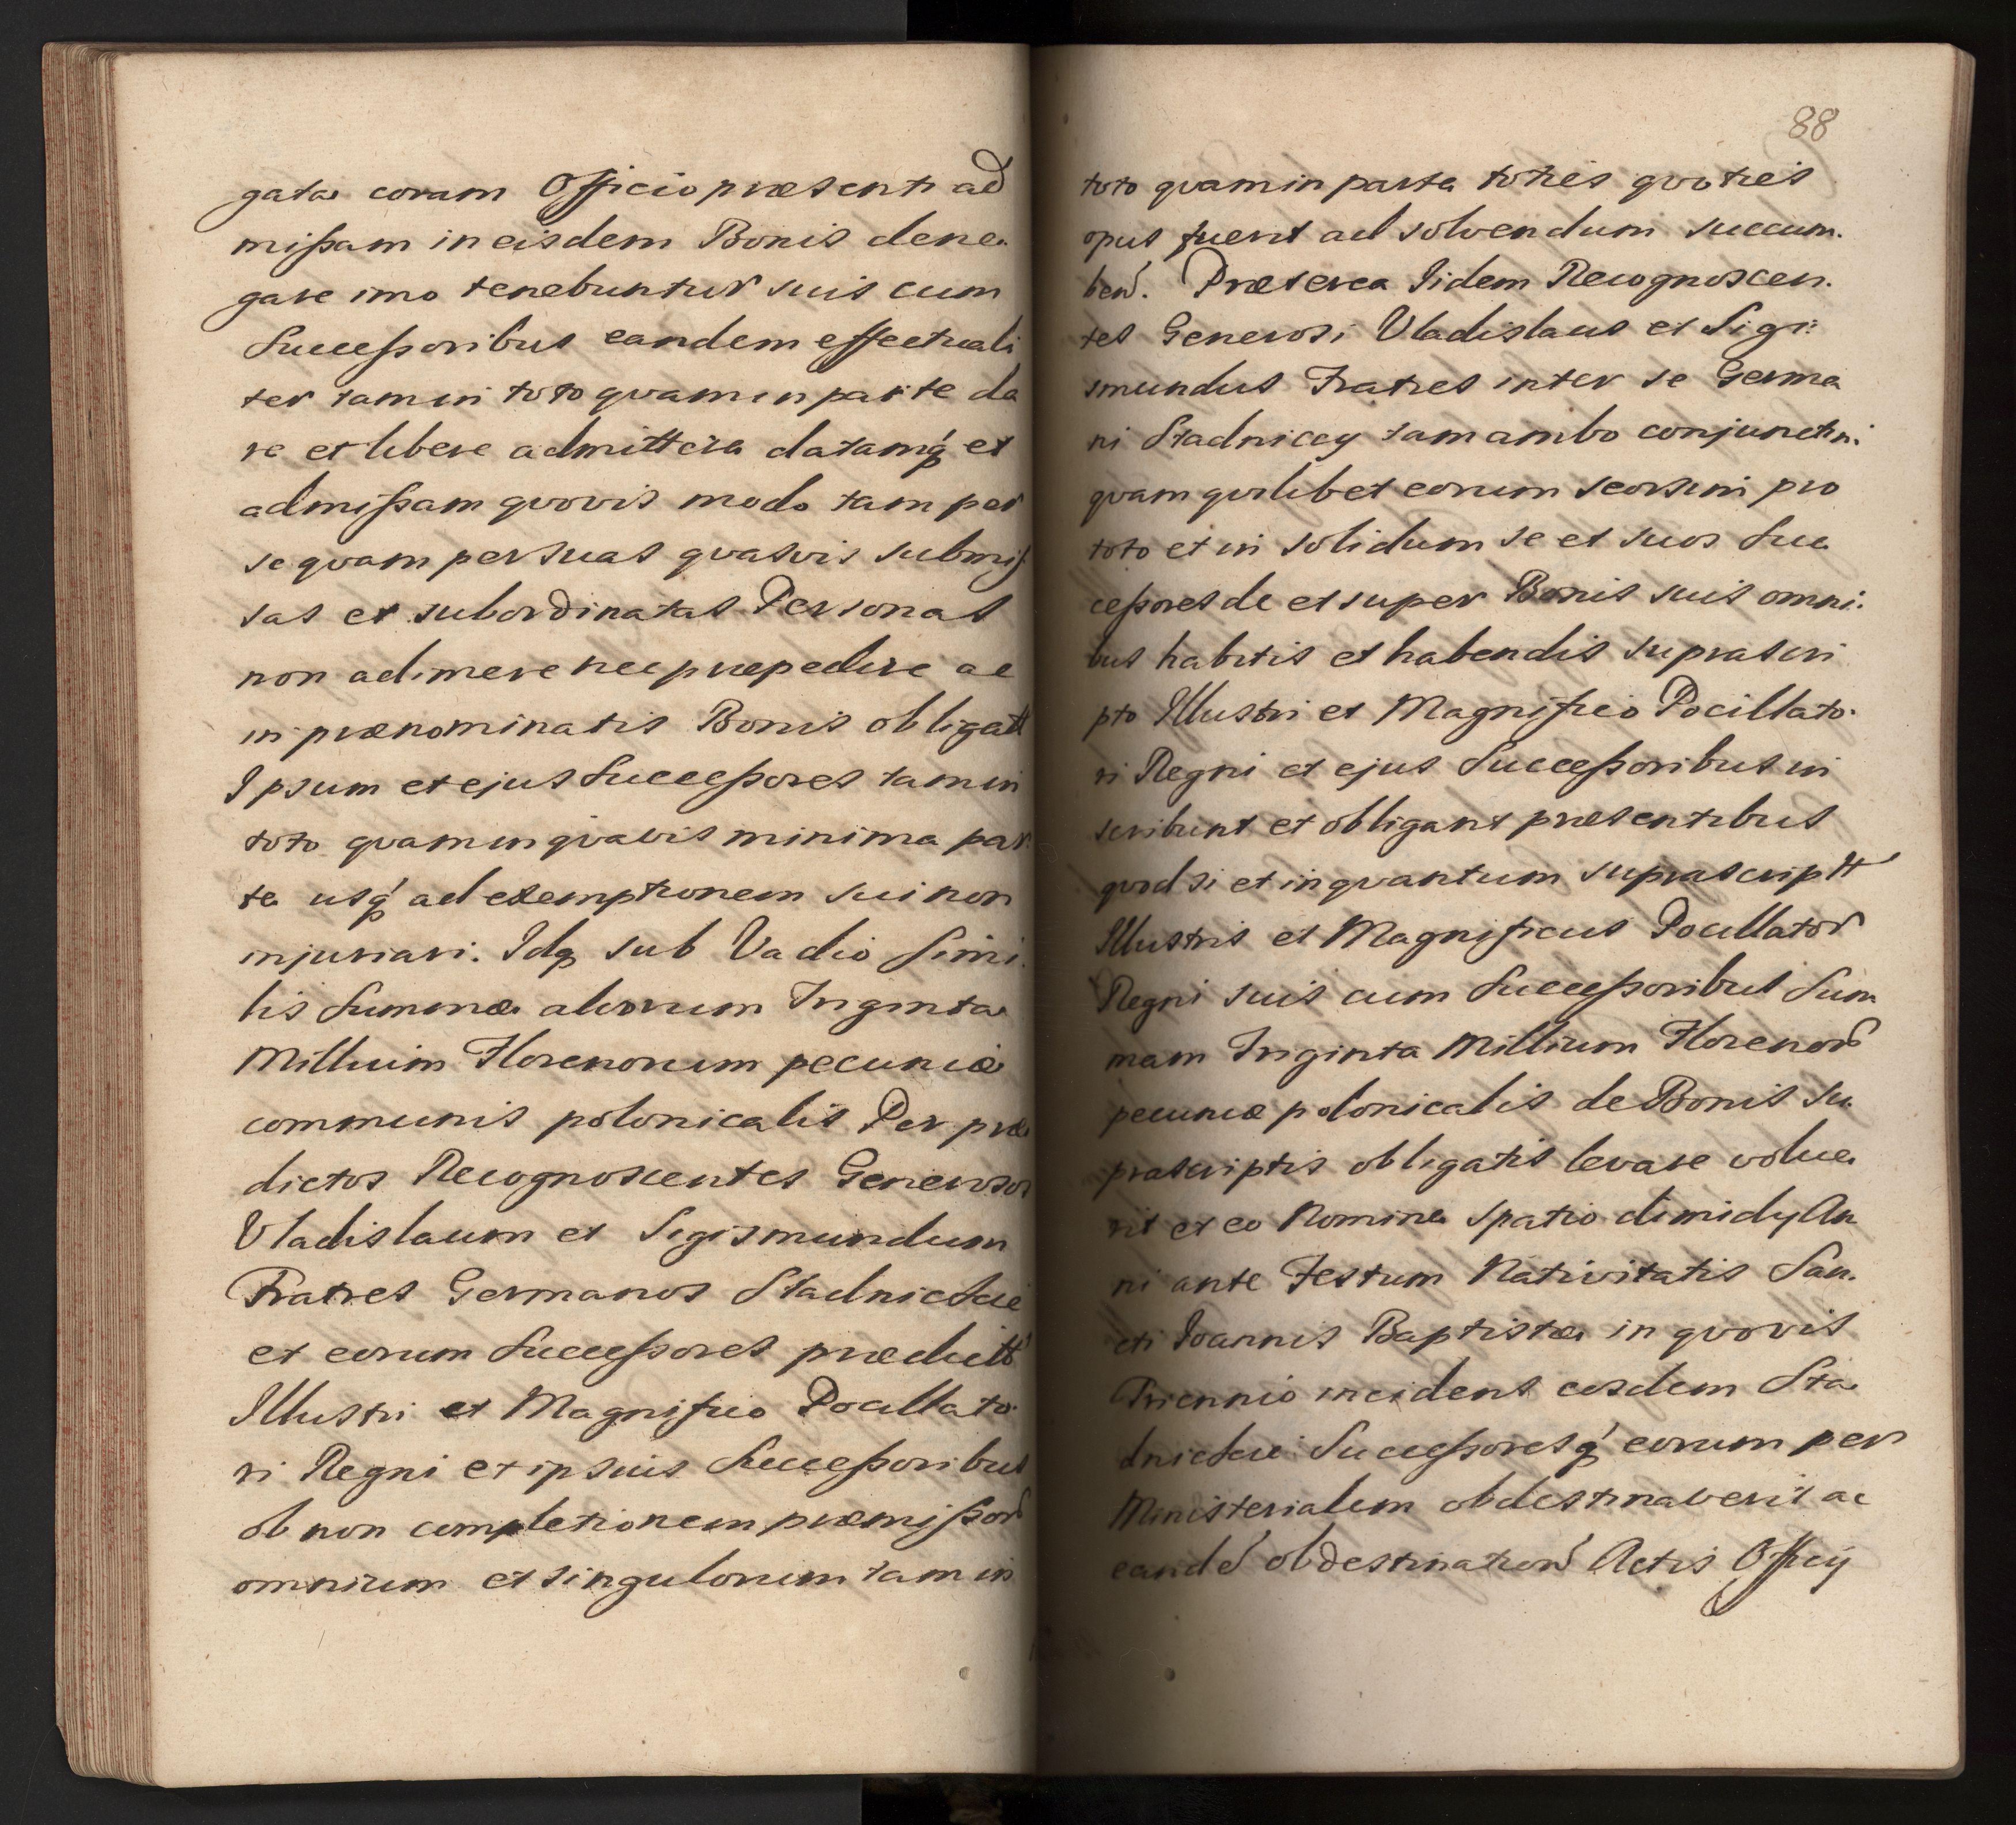 gata coram Officio præsenti ad
mißam in eisdem Bonis dene.
gare imo tenebuntur suis cum
Succeßoribus eandem effectuali
ter tam in toto qvam in parte da
re et libere admittere datamq́ et
admißam qvovis modo tam per
se qvam per suas qvasvis submis
sas et subordinatas Personas
non adimere nec præpedire ac
in prænominatis Bonis obligatt
Ipsum et ejus Succeßores tam in
toto qvam in qvavis minima par
te usq́ ad exemptionem sui non
injuriari. Idq sub Vadio simi.
lis Summæ aliorum Triginta
Millium Florenorum pecuniæ
communis polonicalis Per præ
dictos Recognoscentes Generosos
Vladislaum et Sigismundum
Fratres Germanos Stadnickie
et eorum Succeßores prædictt
Illustri et Magnifico Pocillato.
ri Regni et ipsius Succeßoribus
ob non completionem præmißor
omnium et singulorum tam in
88
toto qvam in parte toties qvoties
opus fuerit ad solvendum succum.
ben. Præterea Iidem Recognoscen.
tes Generosi Vladislaus et Sigi:
smundus Fratres inter se Germa
ni Stadniccy tam ambo conjunctim
qvam qvilibet eorum seorsim pro
toto et in solidum se et suos Suc
ceßores de et super Bonis suis omni.
bus habitis et habendis suprascri
pto Illustri et Magnifico Pocillato.
ri Regni et ejus Succeßoribus in
scribunt et obligant præsentibus
qvod si et inqvantum suprascriptt
Illustris et Magnificus Pocillator
Regni suis cum Succeßoribus Sum
mam Triginta Millium Florenor
pecuniæ polonicalis de Bonis su.
prascriptis obligatis levare volue
rit et eo Nomine spatio dimidy An
ni ante Festum Nativitatis San.
cti Joannis Baptistæ in qvovis
Triennio incident eosdem Sta
dnickie Succeßoresq́ eorum per
Ministerialem obdestinaverit ac
eande obdestination Actis Officy